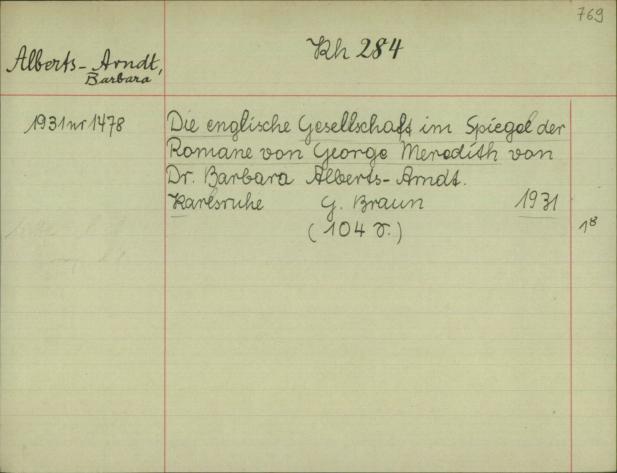 769
Kh 284
Alberts-Arndt,
Barbara
1931 nr 1478
Die englische Gesellschaft im Spiegel der
Romane von George Meredith von
Dr. Barbara Alberts-Arndt.
Karlsruhe G. Braun 1931
(104 S.) 1 8